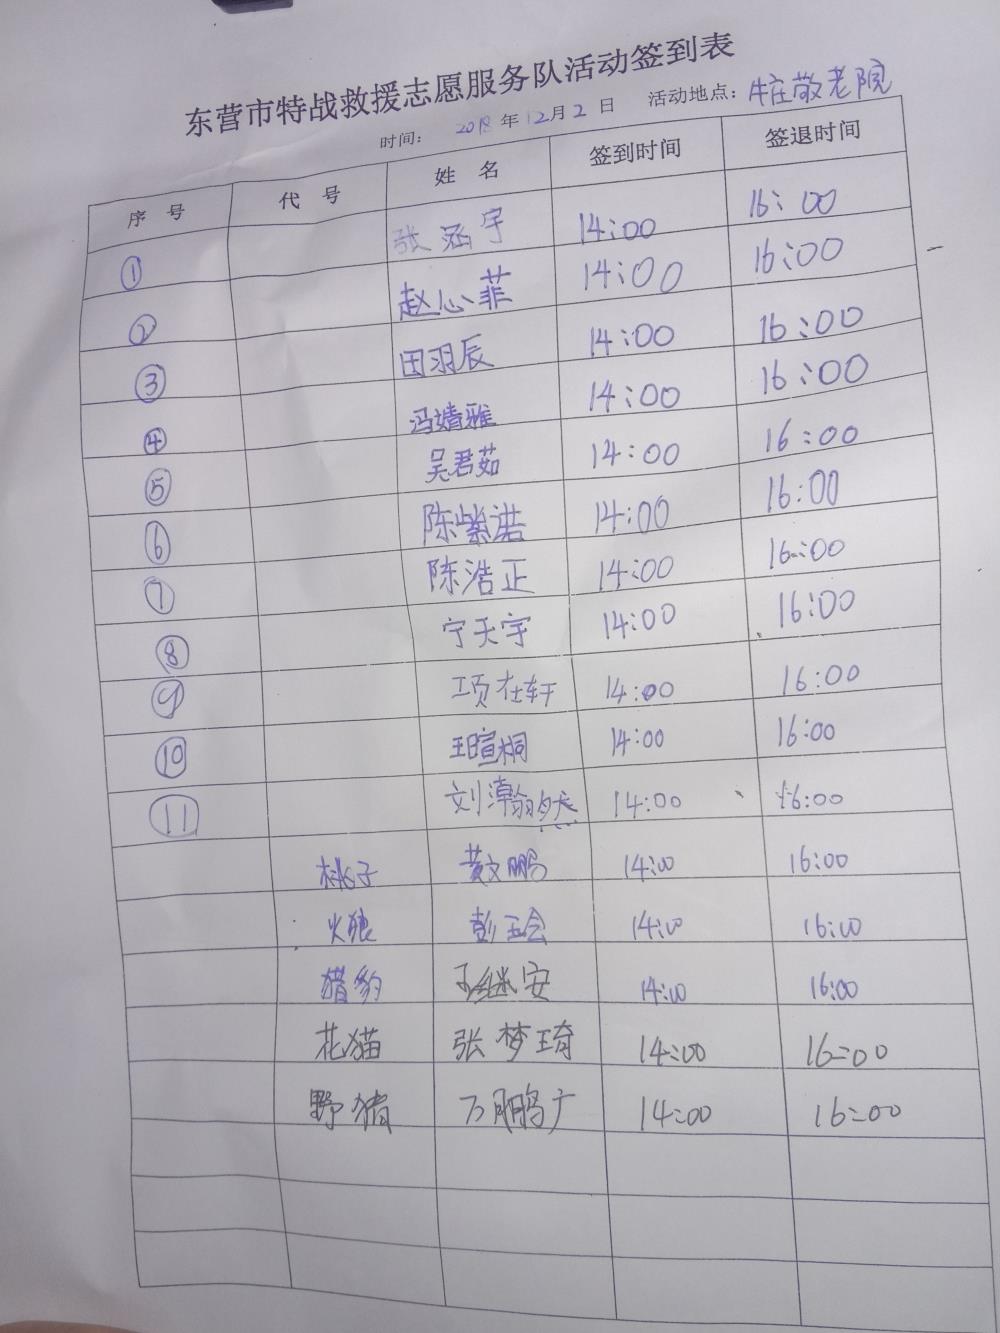 东营市特战救援志愿服务队活动签到表
时间： 2018 年 12月 2 日 活动地点：牛庄敬老院
序 号 代 号 姓 名 签到时间 签退时间
① 张涵宇 14:00 16:00
② 赵心菲 14:00 16:00
③ 田羽辰 14:00 16:00
④ 冯婧雅 14:00 16:00
⑤ 吴君茹 14:00 16:00
⑥ 陈紫诺 14:00 16:00
⑦ 陈浩正 14:00 16:00
⑧ 宁天宇 14:00 16:00
⑨ 项在轩 14:00 16:00
⑩ 王暄桐 14:00 16:00
⑪ 刘瀚然 14:00 16:00
桃子 黄文鹏 14:00 16:00
火狼 彭玉会 14:00 16:00
猎豹 王继安 14:00 16:00
花猫 张梦琦 14:00 16:00
野猪 万鹏广 14:00 16:00